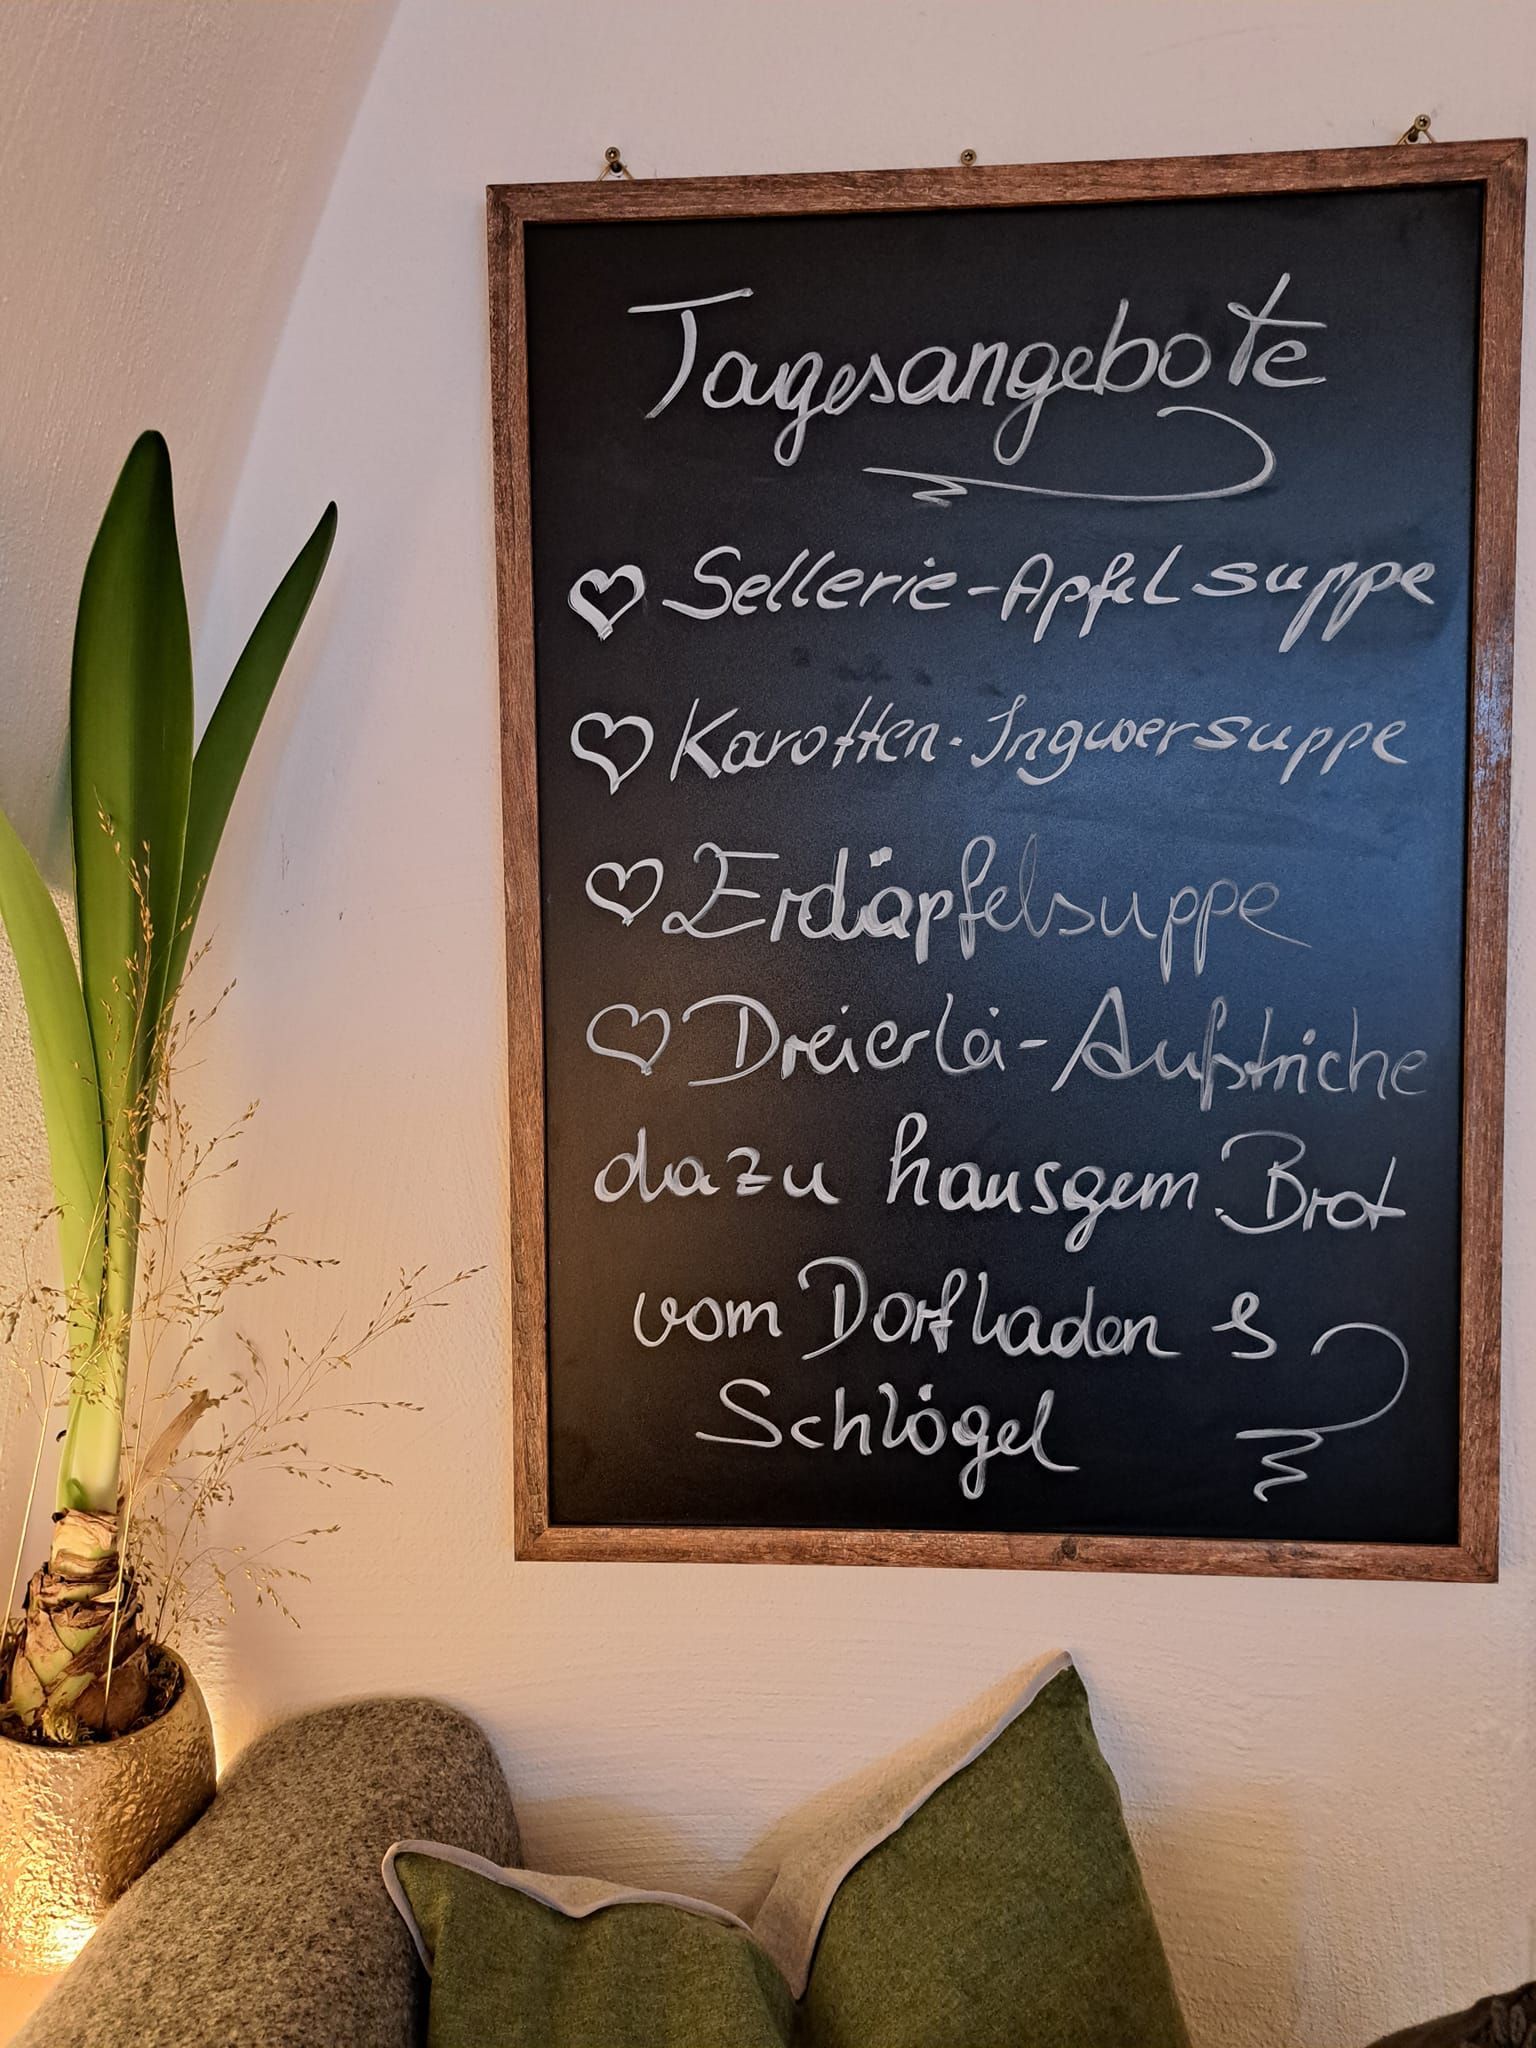 Tagesangebote
Sellerie-Apfelsuppe
Karotten-Ingwersuppe
Erdäpfelsuppe
Dreierlei-Aufstriche
dazu hausgem. Brot
vom Dorfladen &
Schlögel